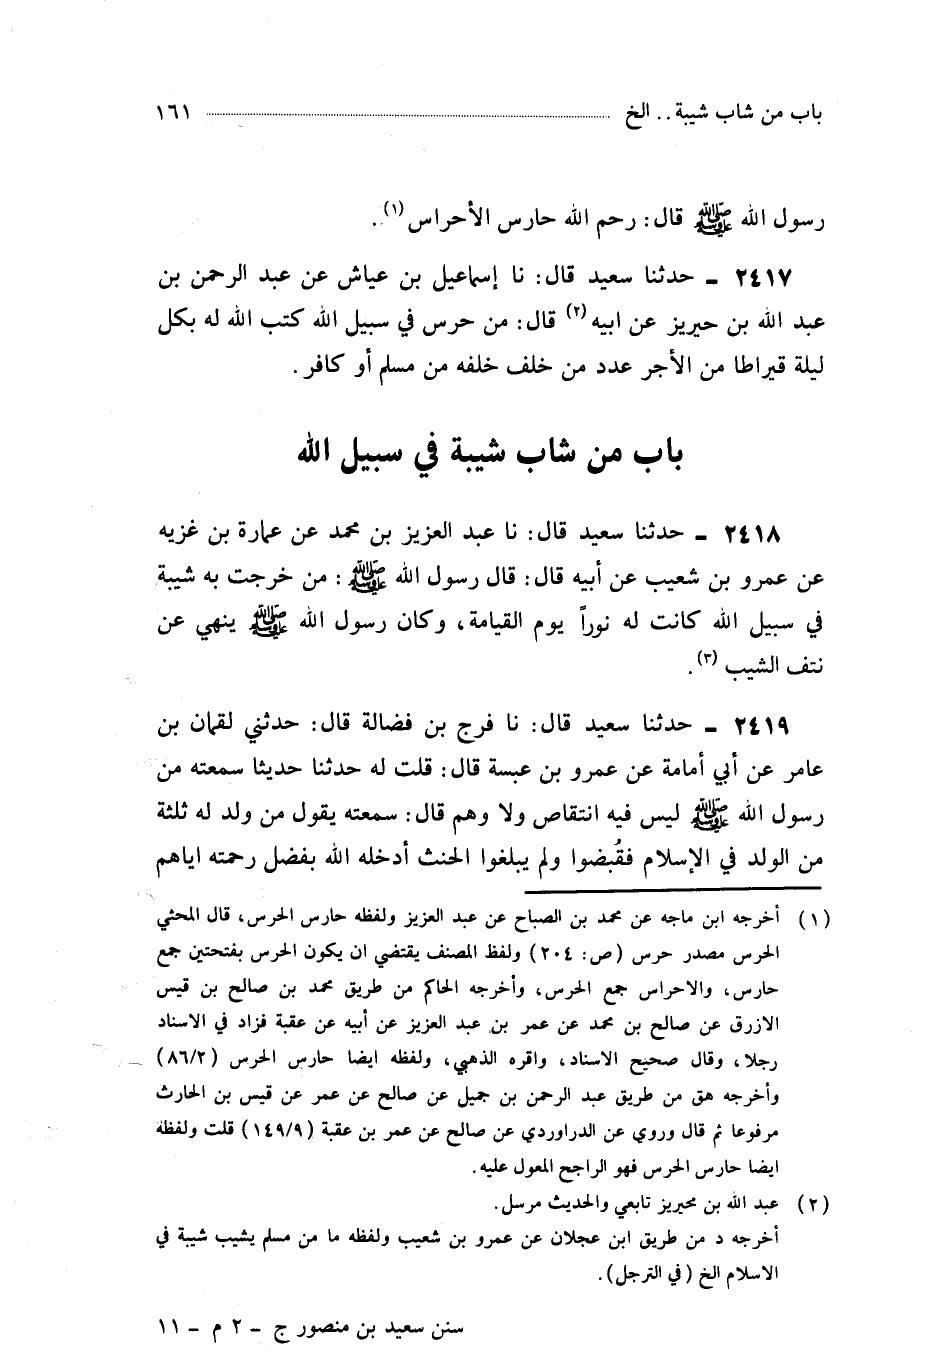 باب من شاب شيبة . . الخ ١٦١
رسول الله ﷺ قال : رحم الله حارس الأحراس (١) .
٢٤١٧ ـ حدثنا سعيد قال : نا إسماعيل بن عياش عن عبد الرحمن بن
عبد الله بن حيريز عن ابيه (٢) قال : من حرس في سبيل الله كتب الله له بكل
ليلة قيراطا من الأجر عدد من خلف خلفه من مسلم أو كافر .
باب من شاب شيبة في سبيل الله
٢٤١٨ ـ حدثنا سعيد قال : نا عبد العزيز بن محمد عن عمارة بن غزيه
عن عمرو بن شعيب عن أبيه قال : قال رسول الله ﷺ : من خرجت به شيبة
في سبيل الله كانت له نوراً يوم القيامة ، وكان رسول الله ﷺ ينهي عن
نتف الشيب (٣) .
٢٤١٩ ـ حدثنا سعيد قال : نا فرج بن فضالة قال : حدثني لقمان بن
عامر عن أبي أمامة عن عمرو بن عبسة قال : قلت له حدثنا حديثا سمعته من
رسول الله ﷺ ليس فيه انتقاص ولا وهم قال : سمعته يقول من ولد له ثلثة
من الولد في الإسلام فقُبضوا ولم يبلغوا الحنث أدخله الله بفضل رحمته اياهم
(١) أخرجه ابن ماجه عن محمد بن الصباح عن عبد العزيز ولفظه حارس الحرس ، قال المحثي
الحرس مصدر حرس (ص : ٢٠٤) ولفظ المصنف يقتضي ان يكون الحرس بفتحتين جمع
حارس ، والاحراس جمع الحرس ، وأخرجه الحاكم من طريق محمد بن صالح بن قيس
الازرق عن صالح بن محمد عن عمر بن عبد العزيز عن أبيه عن عقبة فزاد في الاسناد
رجلا ، وقال صحيح الاسناد ، واقره الذهبي ، ولفظه ايضا حارس الحرس (٨٦/٢)
وأخرجه هق من طريق عبد الرحمن بن جميل عن صالح عن عمر عن قيس بن الحارث
مرفوعا ثم قال وروي عن الدراوردي عن صالح عن عمر بن عقبة (١٤٩/٩) قلت ولفظه
ايضا حارس الحرس فهو الراجح المعول عليه .
(٢) عبد الله بن محيريز تابعي والحديث مرسل .
أخرجه د من طريق ابن عجلان عن عمرو بن شعيب ولفظه ما من مسلم يشيب شيبة في
الاسلام الخ (في الترجل) .
سنن سعيد بن منصور ج ـ ٢ م ـ ١١